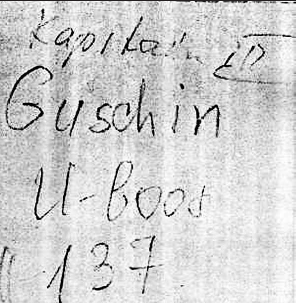 Kapitain
Guschin
U-boos
137